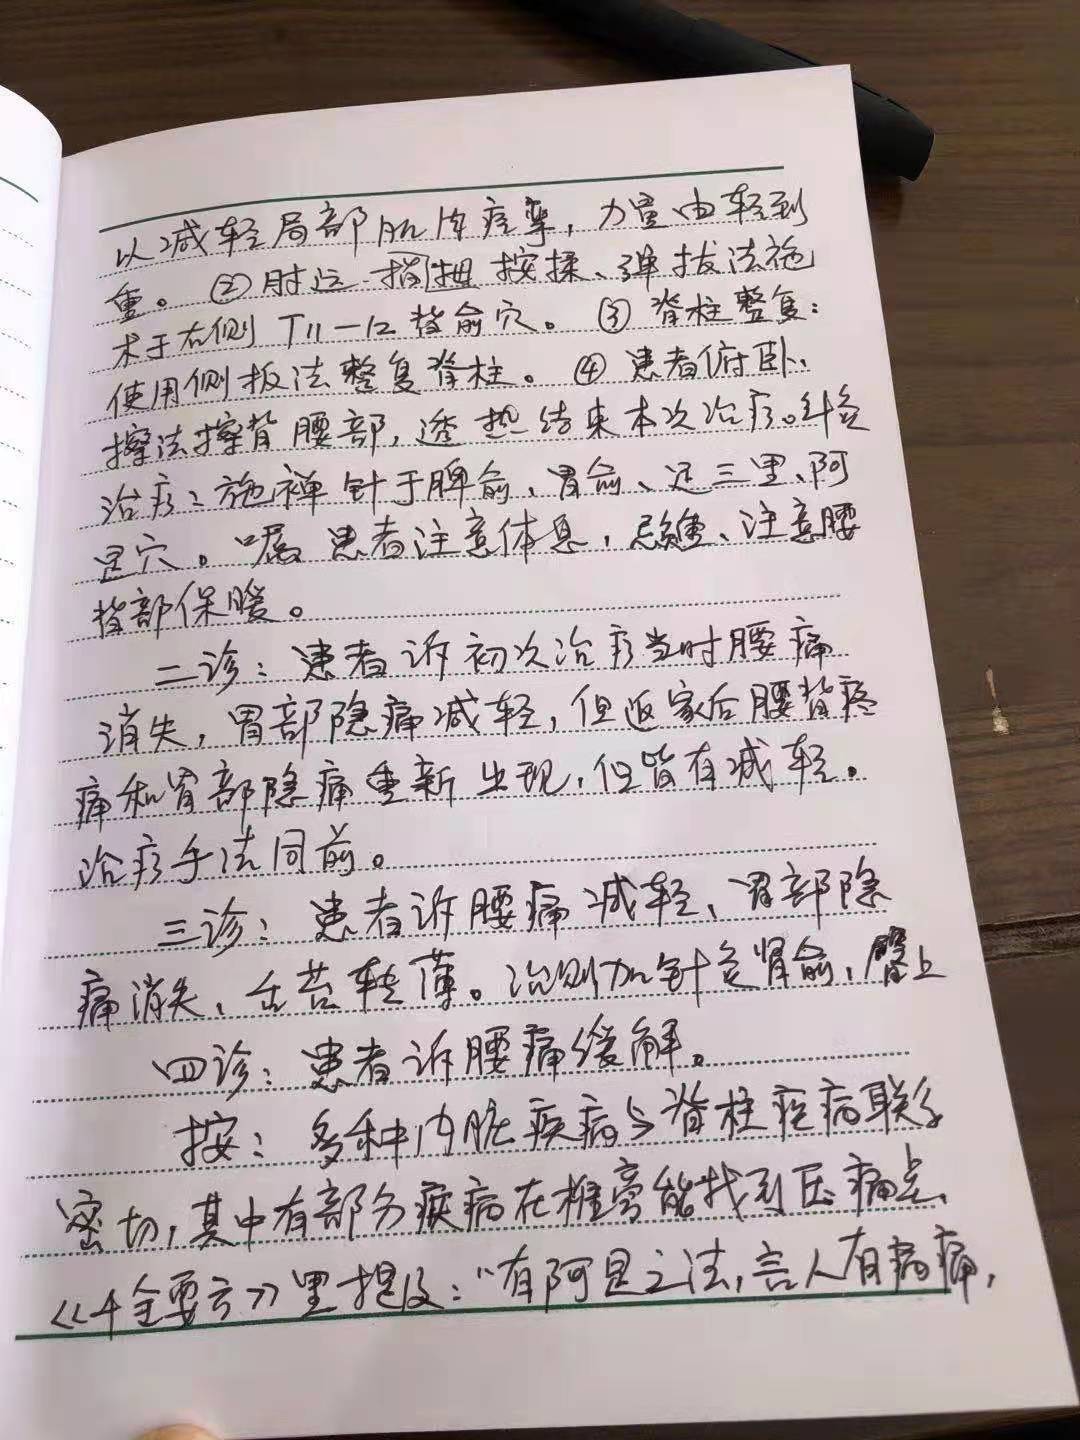 以减轻局部肌肉痉挛，力量由轻到
重。②肘运、拇指按揉、弹拔法施
术于右侧T11—12背俞穴。③脊柱整复：
使用侧扳法整复脊柱。④患者俯卧、
擦法擦背腰部，透热结束本次治疗。针灸
治疗：施禅针于脾俞、胃俞、足三里、阿
是穴。嘱患者注意休息，忌、注意腰
背部保暖。
二诊：患者诉初次治疗当时腰痛
消失，胃部隐痛减轻，但返家后腰背疼
痛和胃部隐痛重新出现，但皆有减轻。
治疗手法同前。
三诊：患者诉腰痛减轻、胃部隐
痛消失、舌苔转薄。治则加针灸肾俞，臀上
四诊：患者诉腰痛缓解。
按：多种内脏疾病与脊柱疾病联系
密切，其中有部分疾病在椎旁能找到压痛点、
《千金要方》里提及：“有阿是之法，言人有病痛，